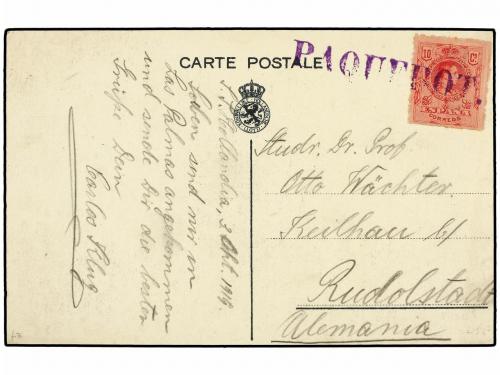 CARTE POSTALE
PAQUEBOT.
10 Cs
ESPAÑA
CORREOS
S.S. Hollandia, 2 Okt. 1919.
Soeben sind wir in
Las Palmas angekommen
und sende Dir die besten
Grüße Dein
Carlos Klug
Studr. Dr. Prof
Otto Wächter.
Keilhau b/
Rudolstadt
Alemania